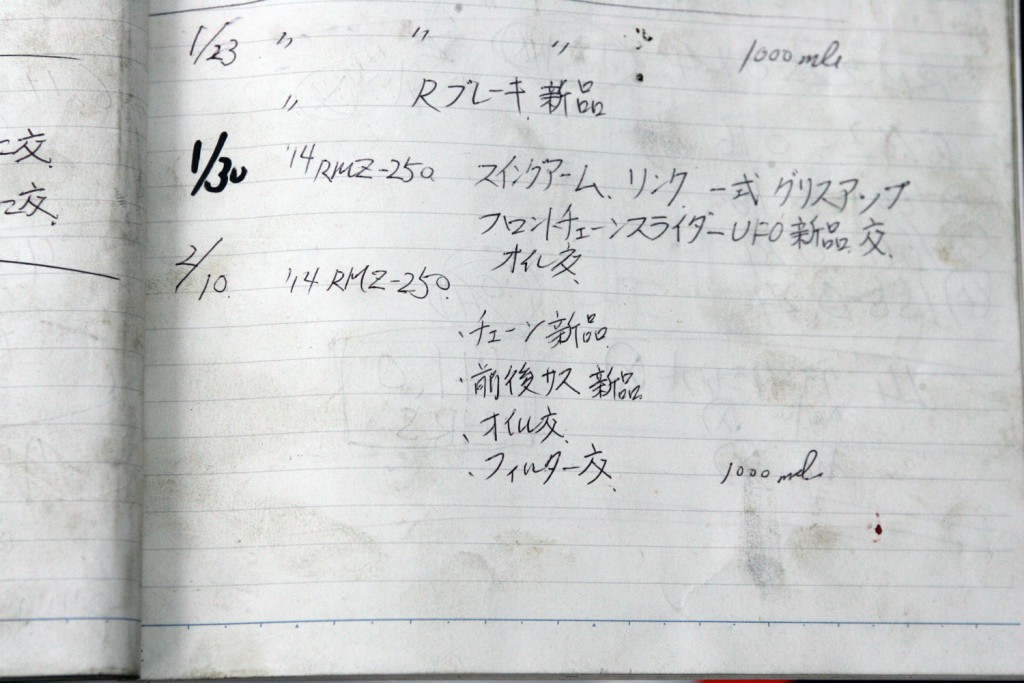 ニ交.
ニ交.
1/23 〃 〃 〃 1000 mℓ
〃 Rブレーキ 新品
1/30 '14 RMZ-250. スイングアーム、リンク 一式 グリスアップ
フロントチェーンスライダー UFO 新品 交.
オイル交.
2/10. '14 RMZ-250.
・チェーン新品
・前後サス 新品
、オイル交.
・フィルター交. 1000 mℓ